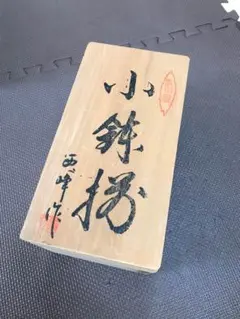 小鉢揃
西峰作